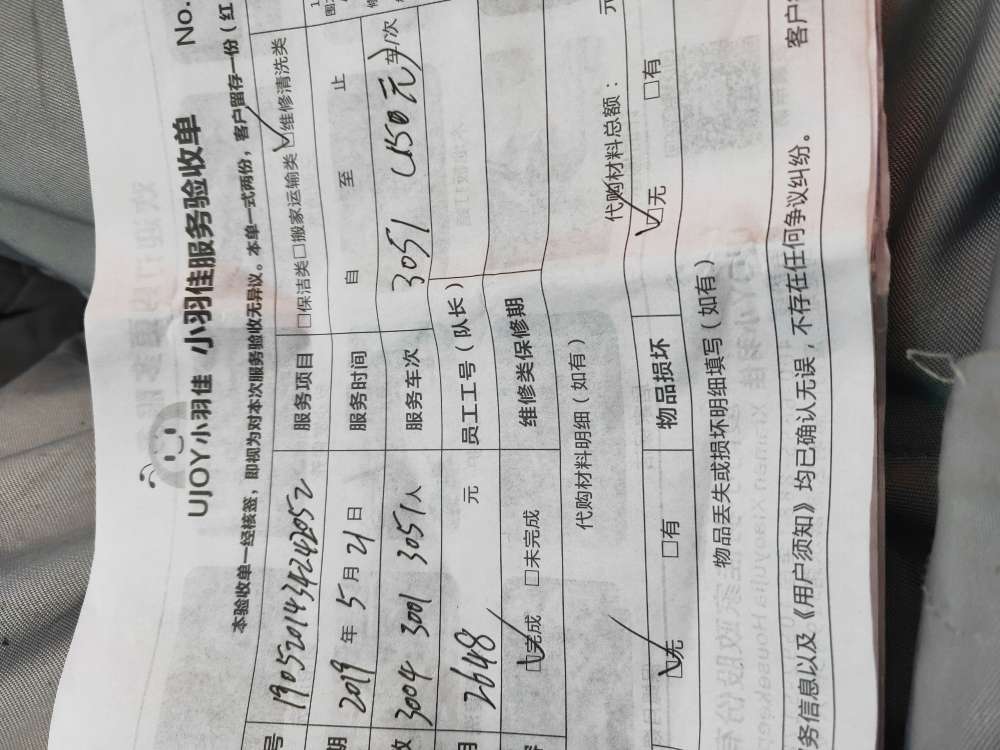 UJOY小羽佳 小羽佳服务验收单 No.
本验收单一经核签，即视为对本次服务验收无异议。本单一式两份，客户留存一份（红
号 1905201434242052 服务项目 □保洁类□搬家运输类☑维修清洗类
期 2019 年 5 月 21 日 服务时间 自 至 止
3004 3001 3051 人 服务车次 3051 (150元) 车/次
2648 元 员工工号（队长）
☑完成 □未完成 维修类保修期
代购材料明细（如有） 代购材料总额： 元
☑无 □有 物品损坏 ☑无 □有
物品丢失或损坏明细填写（如有）
务信息以及《用户须知》均已确认无误，不存在任何争议纠纷。 客户